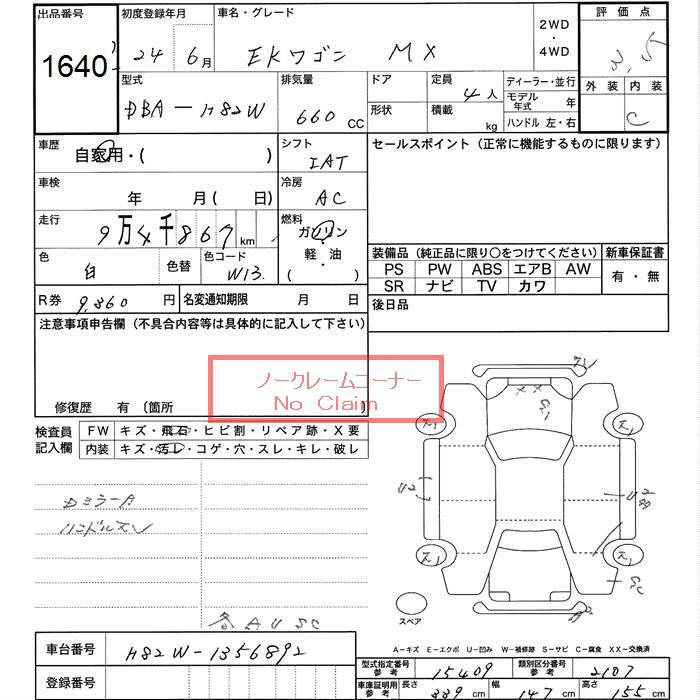 出品番号 初度登録年月 車名・グレード 2WD・4WD 評価点
1640 24年6月 EKワゴン MX 3.5
型式 排気量 ドア 定員 4人 ディーラー・並行 外装 内装
DBA-H82W 660cc 形状 積載 kg モデル年式 年 C
ハンドル 左・右
車歴 自家用・( ) シフト IAT セールスポイント(正常に機能するものに限ります)
車検 年 月( 日) 冷房 AC
走行 9万4千867km 燃料 ガソリン・軽・油( )
色 白 色替 色コード W13. 装備品(純正品に限り〇をつけてください) 新車保証書
PS PW ABS エアB AW 有・無
SR ナビ TV カワ
R券 9,860円 名変通知期限 月 日 後日品
注意事項申告欄(不具合内容等は具体的に記入して下さい)
ノークレームコーナー
No Claim
修復歴 有(箇所
検査員記入欄 FW キズ・飛石・ヒビ割・リペア跡・X要
内装 キズ・汚レ・コゲ・穴・スレ・キレ・破レ
Dミラーカ
ハンドルスレ
各AUSC
スペア
A-キズ E-エクボ U-凹み W-補修跡 S-サビ C-腐食 XX-交換済
車台番号 H82W-1356892 型式指定番号 参考 15409 類別区分番号 参考 2107
登録番号 車庫証明用 参考 長さ 339cm 幅 147cm 高さ 155cm